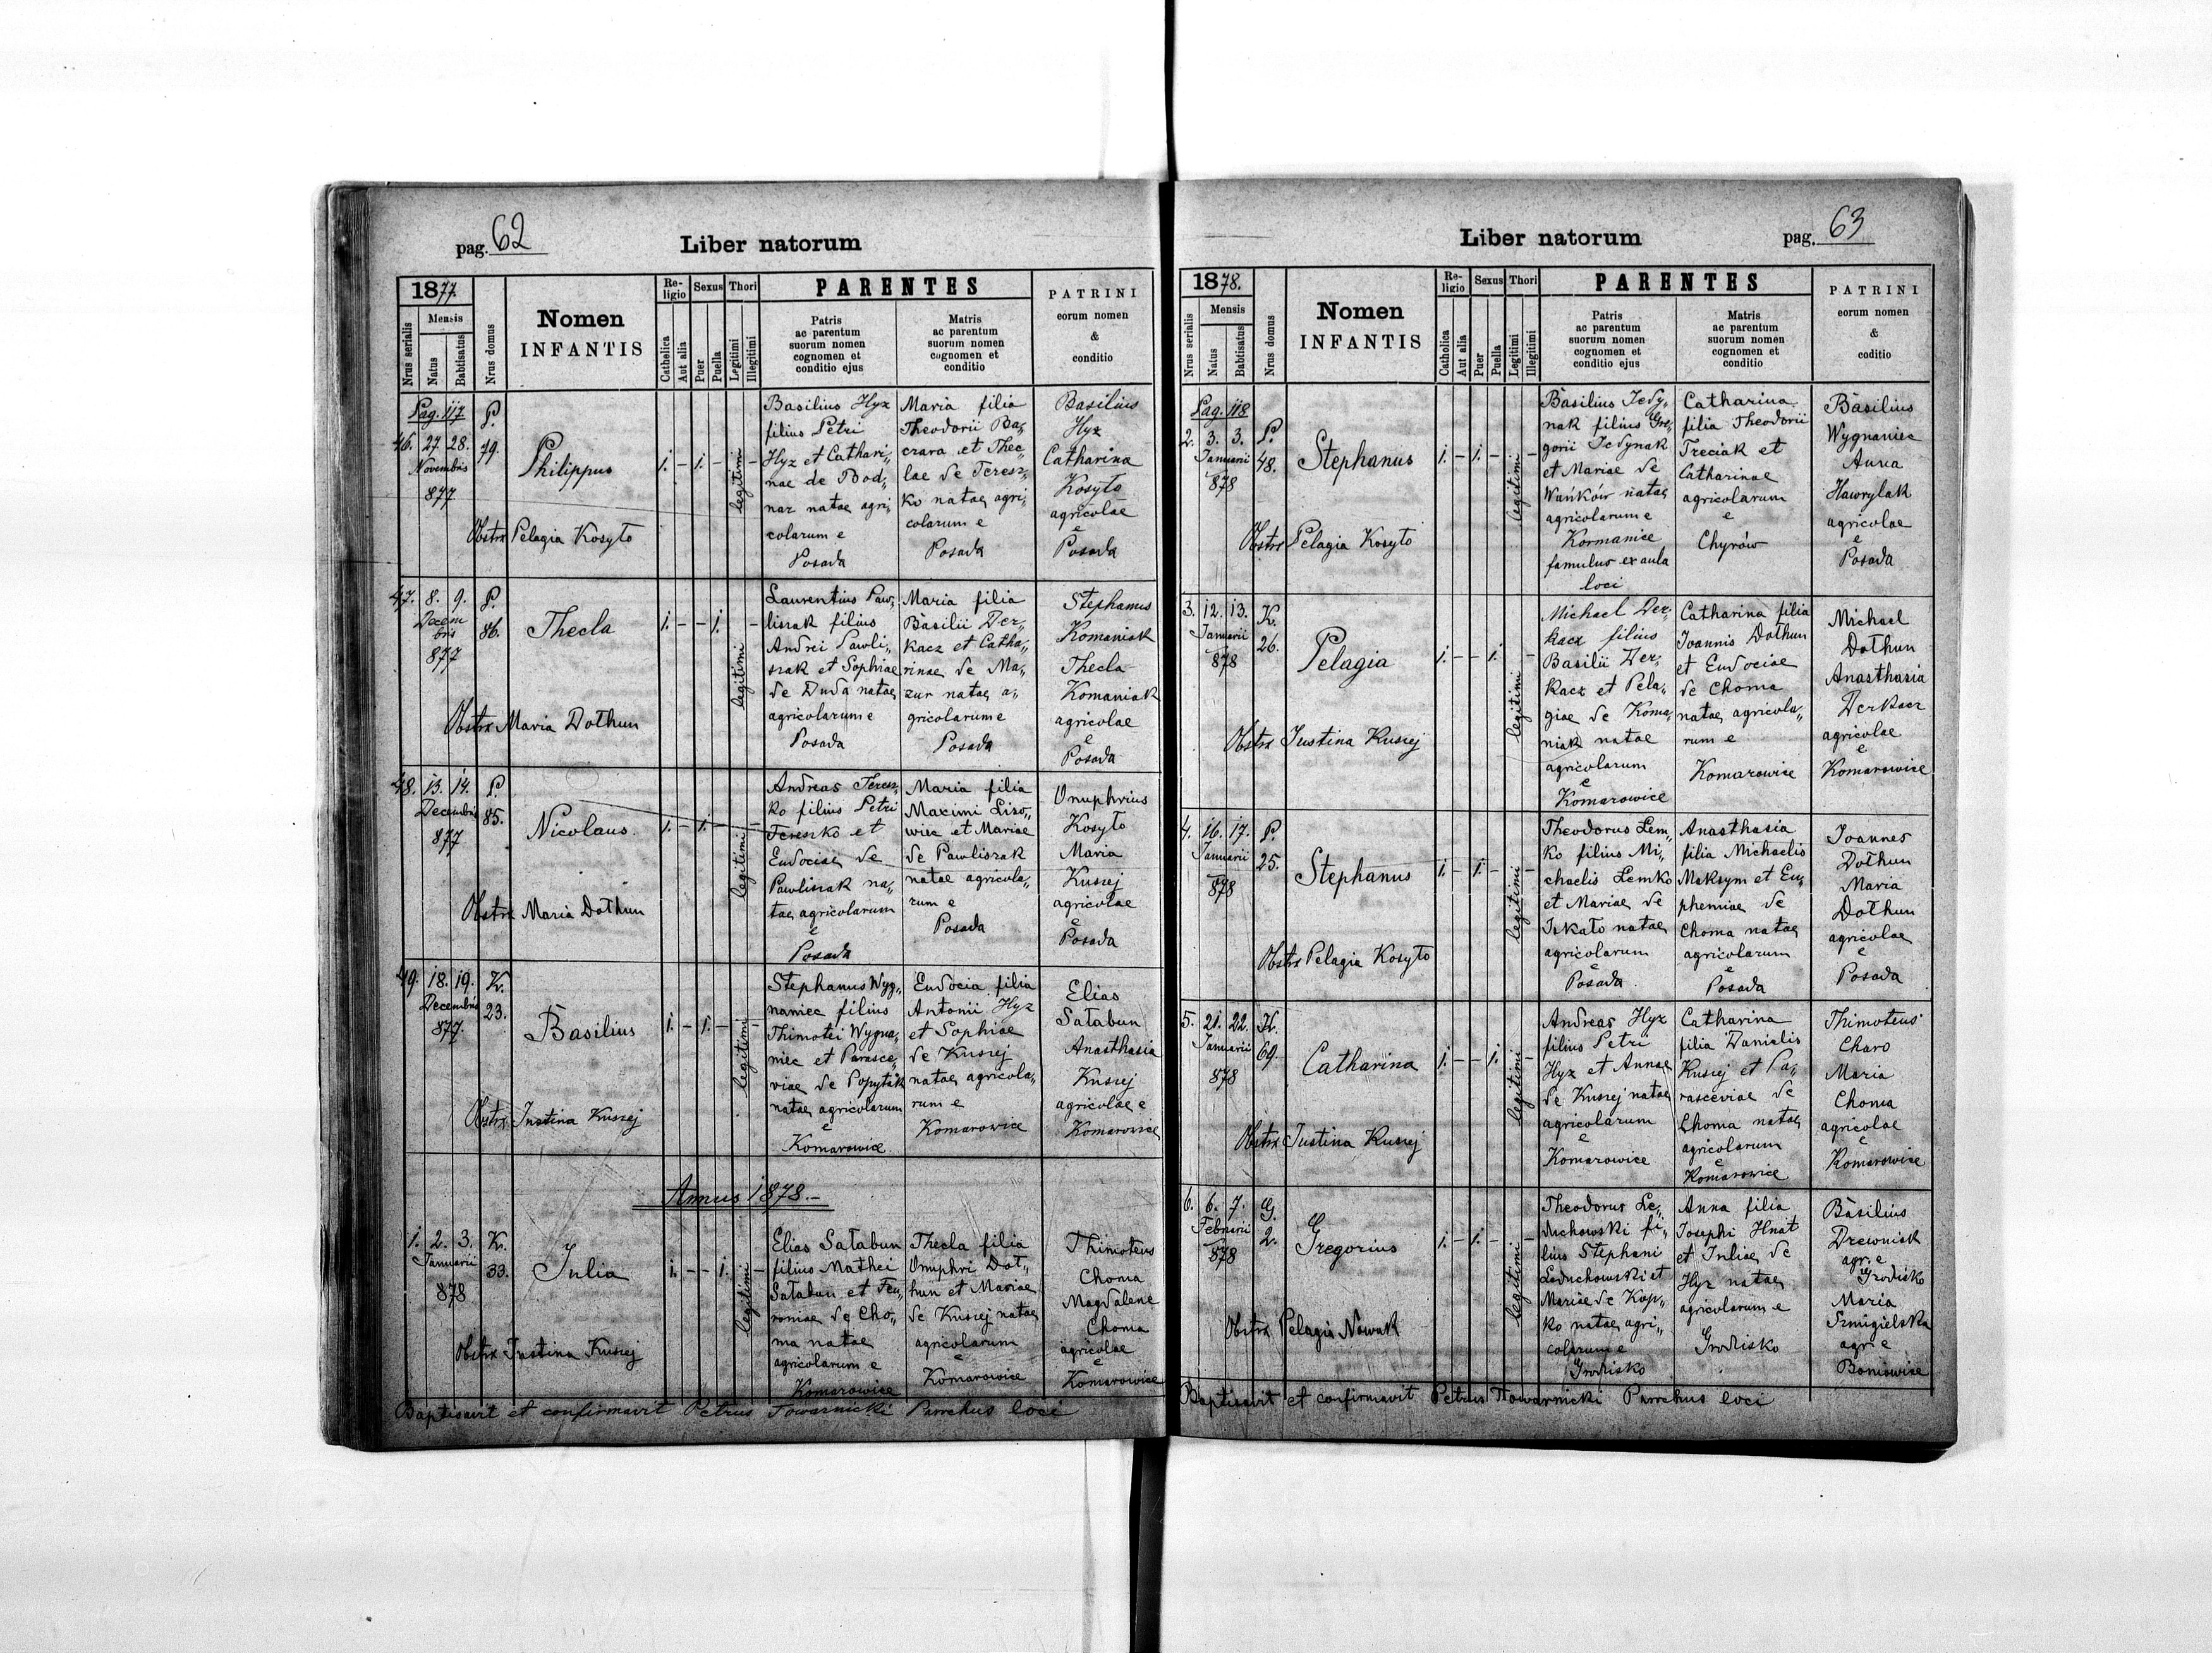 pag. 62
Liber natorum
1877.
Nrus serialis
Mensis
Natus
Babtisatus
Nrus domus
Nomen
INFANTIS
Religio
Catholica
Aut alia
Sexus
Puer
Puella
Thori
Legitimi
Illegitimi
PARENTES
Patris
ac parentum
suorum nomen
cognomen et
conditio ejus
Matris
ac parentum
suorum nomen
cognomen et
conditio
PATRINI
eorum nomen
&
conditio
Pag. 117
46. 27 28.
Novembris
877
P.
79.
Philippus
1. – 1. – legitimi –
Obstrx Pelagia Kosyło
Basilius Hyz
filius Petri
Hyz et Cathari„
nae de Bod„
nar natae agri„
colarum e
Posada
Maria filia
Theodorii Ba„
crara et Thec„
lae de Teresz„
ko natae agri„
colarum e
Posada
Basilius
Hyz
Catharina
Kosyło
agricolae
e
Posada
47. 8. 9.
Decem
bris
877
P.
86.
Thecla
1. – – 1. legitimi –
Obstrx Maria Dołhun
Laurentius Paw„
liszak filius
Andrei Pawli„
szak et Sophiae
de Duda natae
agricolarum e
Posada
Maria filia
Basilii Der„
kacz et Catha„
rinae de Ma„
zur natae a„
gricolarum e
Posada
Stephanus
Komaniak
Thecla
Komaniak
agricolae
e
Posada
48. 13. 14.
Decembris
877
P.
85.
Nicolaus.
1. – 1. – legitimi –
Obstrx Maria Dołhun
Andreas Teresz„
ko filius Petri
Tereszko et
Eudociae de
Pawliszak na„
tae agricolarum
e
Posada
Maria filia
Maximi Liso„
wiec et Mariae
de Pawliszak
natae agricola„
rum e
Posada
Onuphrius
Kosyło
Maria
Kusziej
agricolae
e
Posada
49. 18. 19.
Decembris
877.
K.
23.
Basilius
1. – 1. – legitimi –
Obstrx Justina Kusziej
Stephanus Wyg„
naniec filius
Thimotei Wygna„
niec et Parasce„
viae de Popytak
natae agricolarum
e
Komarowice.
Eudocia filia
Antonii Hyz
et Sophiae
de Kusziej
natae agricola„
rum e
Komarowice
Elias
Sałabun
Anasthasia
Kusziej
agricolae e
Komarowice
Annus 1878.–
1. 2. 3.
Januarii
878
K.
33.
Julia
1. – – 1. legitimi –
Obstrx Justina Kusziej
Elias Sałabun
filius Mathei
Sałabun et Feu„
roniae de Cho„
ma natae
agricolarum e
Komarowice
Thecla filia
Onuphri Doł„
hun et Mariae
de Kusziej natae
agricolarum
e
Komarowice
Thimoteus
Choma
Magdalene
Choma
agricolae
e
Komarowice
Baptisavit et confirmavit Petrus Towarnicki Parrchus loci
Liber natorum
pag. 63
1878.
Nrus serialis
Mensis
Natus
Babtisatus
Nrus domus
Nomen
INFANTIS
Religio
Catholica
Aut alia
Sexus
Puer
Puella
Thori
Legitimi
Illegitimi
PARENTES
Patris
ac parentum
suorum nomen
cognomen et
conditio ejus
Matris
ac parentum
suorum nomen
cognomen et
conditio
PATRINI
eorum nomen
&
coditio
Pag. 118
2. 3. 3.
Januarii
878
P.
48.
Stephanus
1. – 1. – legitimi –
Obstrx Pelagia Kosyło
Basilius Jedy„
nak filius Gre„
gorii Jedynak
et Mariae de
Wańków natae
agricolarum e
Kormanice
famulus ex aula
loci
Catharina
filia Theodorii
Treciak et
Catharinae
agricolarum
e
Chyrów
Basilius
Wygnaniec
Anna
Hawrylak
agricolae
e
Posada
3. 12. 13.
Januarii
878
K.
26.
Pelagia
1. – – 1. legitimi –
Obstrx Justina Kusziej
Michael Der„
kacz filius
Basilii Der„
kacz et Pela„
giae de Koma„
niak natae
agricolarum
e
Komarowice
Catharina filia
Joannis Dołhun
et Eudociae
de Choma
natae agricola„
rum e
Komarowice
Michael
Dołhun
Anasthasia
Derkacz
agricolae
e
Komarowice
4. 16. 17.
Januarii
878
P.
25.
Stephanus
1. – 1. – legitimi –
Obstrx Pelagia Kosyło
Theodorus Lem„
ko filius Mi„
chaelis Lemko
et Mariae de
Iskało natae
agricolarum
e
Posada
Anasthasia
filia Michaelis
Maksym et Eu„
phemiae de
Choma natae
agricolarum
e
Posada
Joannes
Dołhun
Maria
Dołhun
agricolae
e
Posada
5. 21. 22.
Januarii
878
K.
69.
Catharina
1. – – 1. legitimi –
Obstrx Justina Kusziej
Andreas Hyz
filius Petri
Hyz et Annae
de Kusziej natae
agricolarum
e
Komarowice
Catharina
filia Danielis
Kusziej et Pa„
rasceviae de
Choma natae
agricolarum
e
Komarowice
Thimoteus
Charo
Maria
Choma
agricolae
e
Komarowice
6. 6. 7.
Februarii
878
G.
2.
Gregorius
1. – 1. – legitimi –
Obstrx Pelagia Nowak
Theodorus Le„
duchowski fi„
lius Stephani
Leduchowski et
Mariae de Kop„
ko natae agri„
colarum e
Grodisko
Anna filia
Josephi Hnat
et Juliae de
Hyz natae
agricolarum e
Grodisko
Basilius
Drewniak
agr. e
Grodisko
Maria
Szmigielska
agr. e
Boniowice
Baptisavit et confirmavit Petrus Towarnicki Parrchus loci